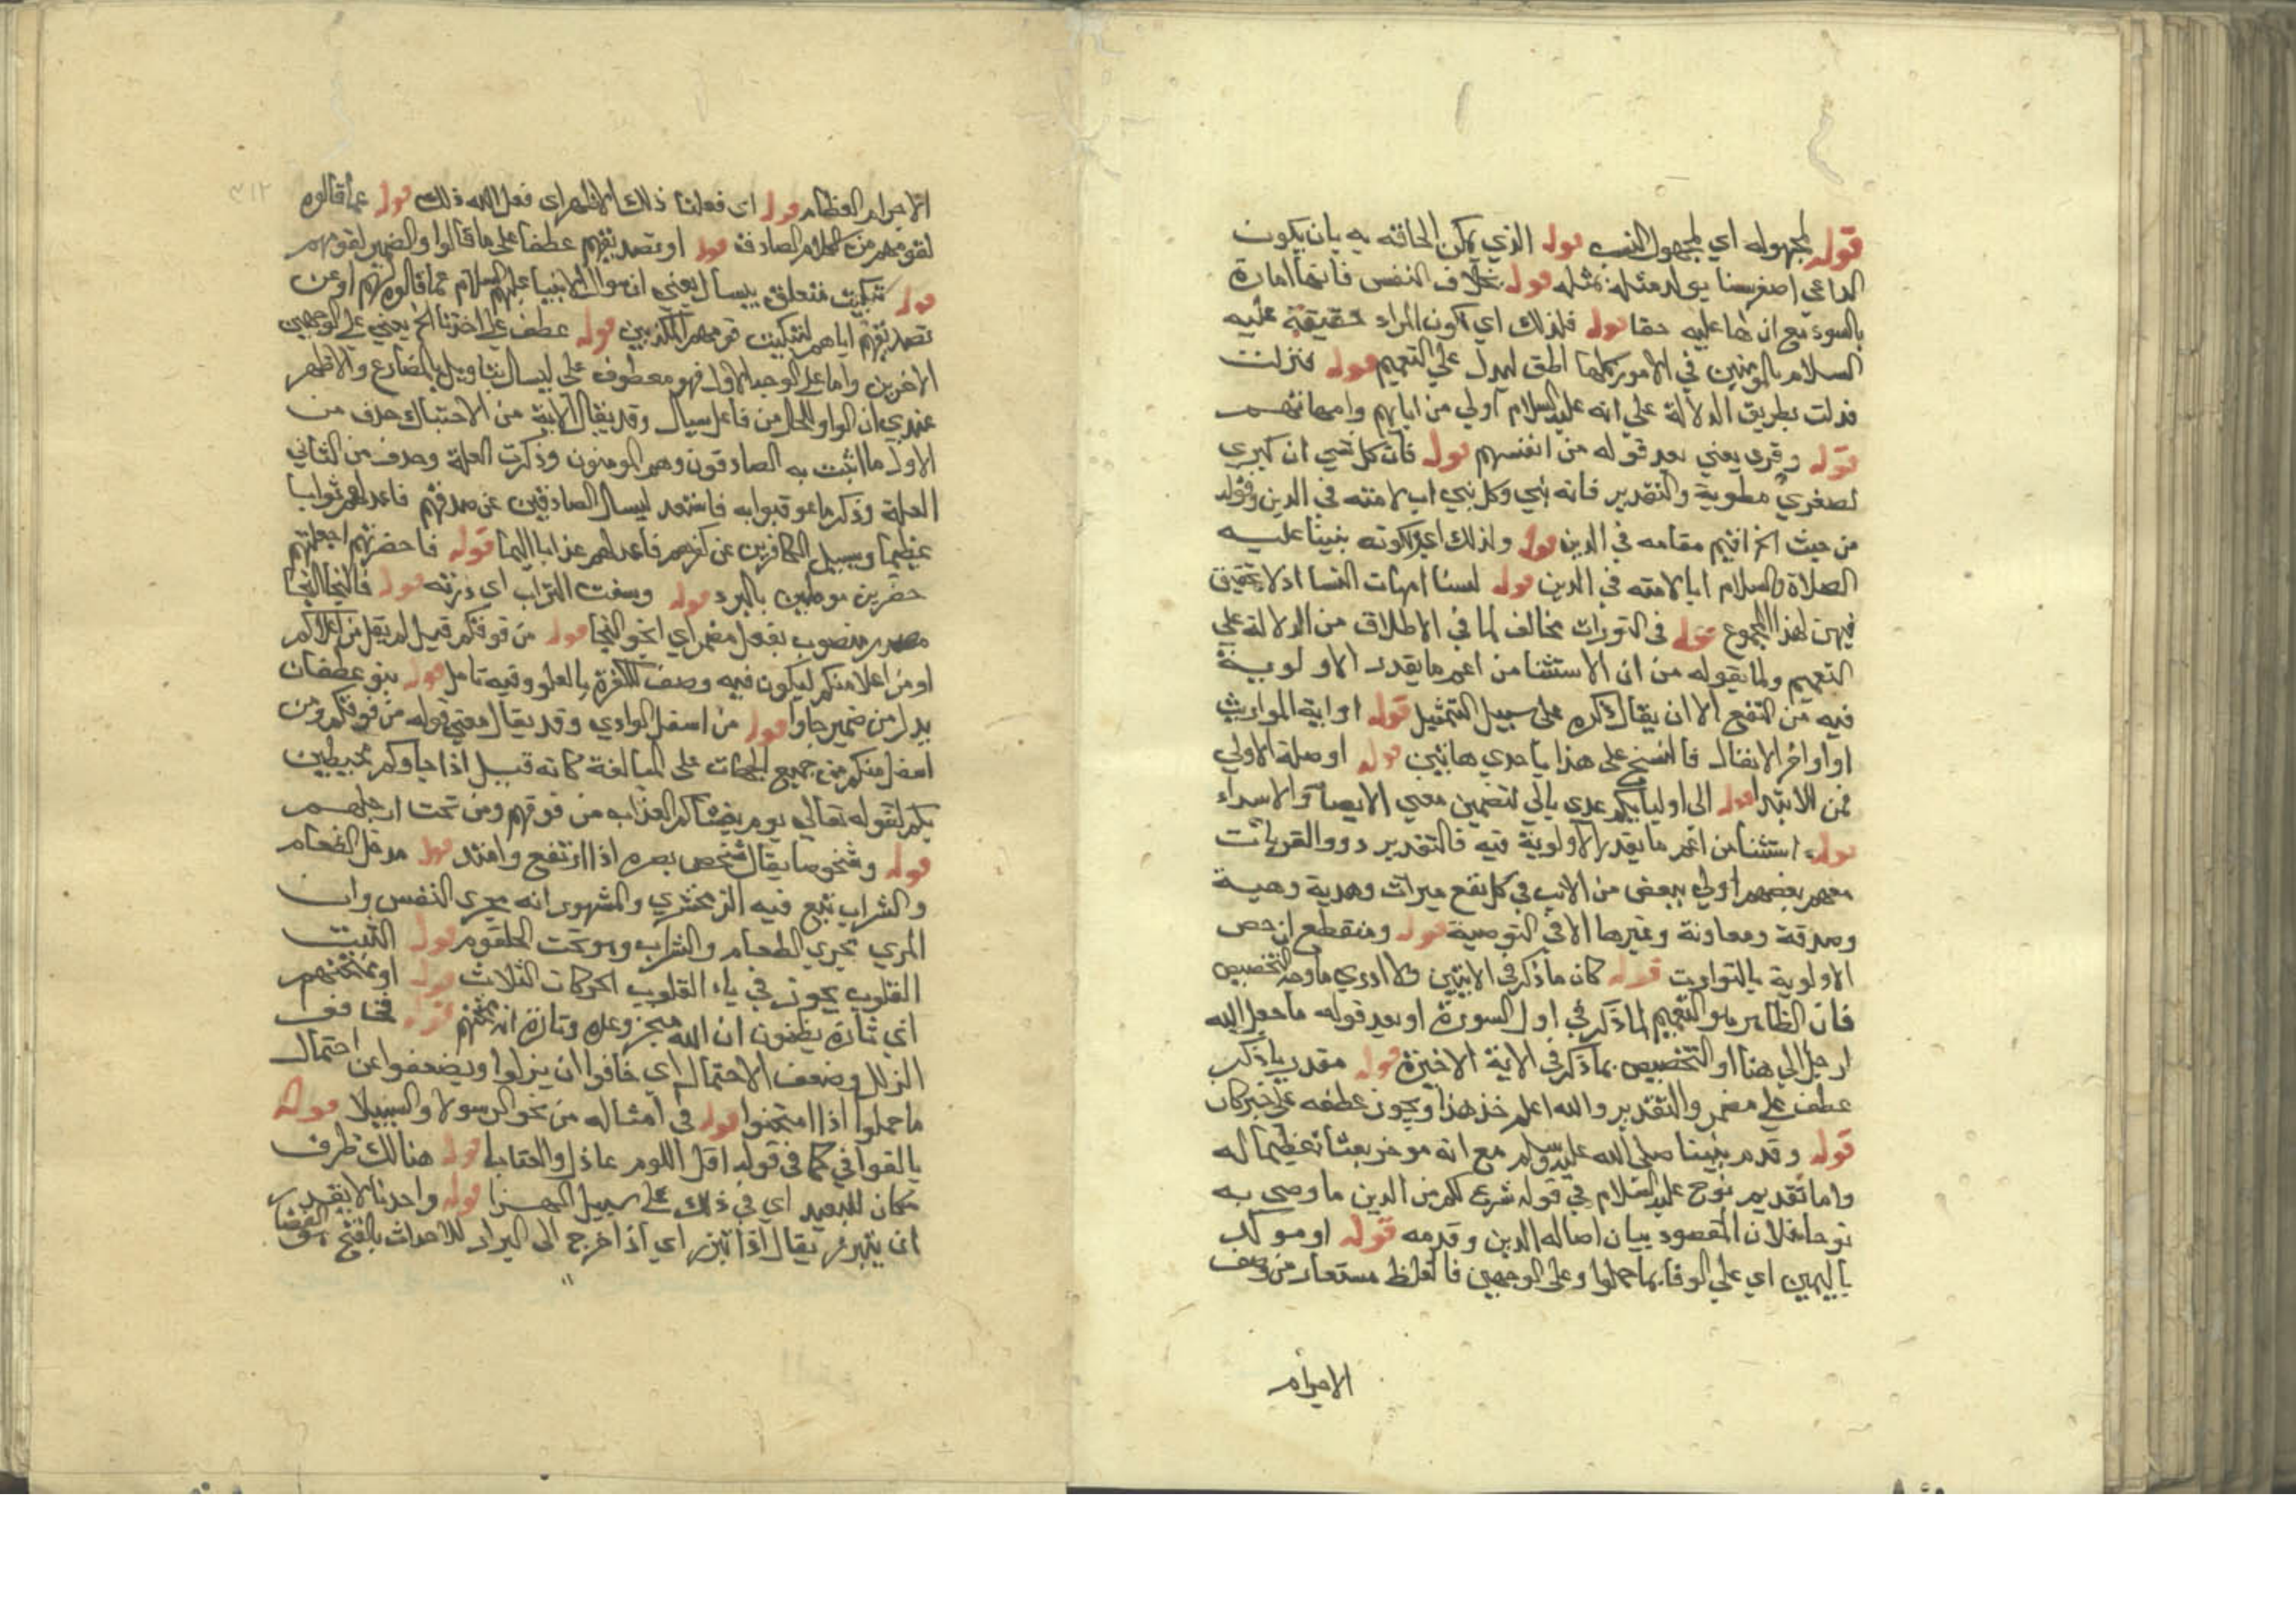 قوله لمجهوله اي لمجهول النسب قوله الذي يمكن الحاقه به بان يكون
الداعي اصغر سنا يولد مثله لمثله قوله بخلاف النفس فانها امارة
بالسوء مع ان لها عليه حقا قوله فلذلك اي لكون المراد حقيقة عليه
السلام بالمومنين في الامور كلها اطلق ليدل علي التعميم قوله فنزلت
فدلت بطريق الدلالة علي انه عليه السلام اولي من ابايهم وامهاتهم
قوله وقري يعني بعد قوله من انفسهم قوله فان كل نبي اب كبري
لصغري مطوية والتقدير فانه نبي وكل نبي اب لامته في الدين وقوله
من حيث الخ اقيم مقامه في الدين قوله ولذلك اي لكونه نبينا عليه
الصلاة والسلام ابا لامته في الدين قوله لسنا امهات النسا اذ لا تحقيق
فيهن لهذا المجموع قوله في التوراث مخالف لما في الاطلاق من الدلالة علي
التعميم ولما يقوله من ان الاستثنا من اعم ما يقدر الاولوية
فيه من النفع الا ان يقال ذكره علي سبيل التمثيل قوله او اية المواريث
او اواخر الانفال فالنسخ علي هذا باحدي هاتين قوله او صلة لاولي
فمن للابتدا قوله الي اوليايكم عدي بالي لتضمين معني الايصا والاسداء
قوله استثنا من اعم ما يقدر الاولوية فيه فالتقدير ذووا القربات
بعضهم اولي ببعض من الاجانب في كل نفع ميراث وهدية وهبة
وصدقة ومعاونة وغيرها الا في التوصية قوله ومنقطع ان خص
الاولوية بالتوارث قوله كان ما ذكر في الايتين ولا ادري ما وجه التخصيص
فان الظاهر هو التعميم لما ذكر في اول السورة او بعد قوله ما جعل الله
لرجل الي هنا او التخصيص بما ذكر في الاية الاخيرة قوله مقدر باذكر
عطف علي مضمر والتقدير والله اعلم خذ هذا ويجوز عطفه علي خبر كان
قوله وقدم نبينا صلي الله عليه وسلم مع انه موخر بعثا تعظيما له
واما تقديم نوح عليه السلام في قوله شرع لكم من الدين ما وصي به
نوحا فلان المقصود بيان اصالة الدين وقدمه قوله او موكد
باليمين اي علي الوفا بما حملوا وعلي الوجهين فالغلظ مستعار من وصف
الاجرام
٣١٢
الاجرام العظام قوله اي فعلنا ذلك الاظهر اي فعل الله ذلك قوله عما قالوه
لقومهم من الكلام الصادق قوله او تصديقهم عطفا علي ما قالوا والضمير لقومهم
قوله تبكيت متعلق بيسال يعني ان سوال الانبيا عليهم السلام عما قالوه لهم او عن
تصديقهم اياهم لتبكيت قومهم المكذبين قوله عطف علي اخذنا الخ يعني علي الوجهين
الاخرين واما علي الوجه الاول فهو معطوف علي ليسال بتاويل بالمضارع والاظهر
عندي ان الواو للحال من فاعل يسال وقد يقال الاية من الاحتباك حذف من
الاول ما اثبت به الصادقون وهم المومنون وذكرت العلة وحذف من الثاني
العلة وذكر ما عوقبوا به فاستعد ليسال الصادقين عن صدقهم فاعد لهم ثوابا
عظيما ويسيل الكافرين عن كفرهم فاعد لهم عذابا اليما قوله فاحضرتهم اجعلتهم
حضرين موطين بالبرد قوله وسفت التراب اي ذرته قوله فالنجا النجا
مصدر منصوب بفعل مضمر اي انجو النجا قوله من فوقكم قيل لم يقل من اعلاكم
او من اعلا منكم ليكون فيه وصف الكفرة بالعلو وفيه تامل قوله بنو غطفان
بدل من ضمير جاوا قوله من اسفل الوادي وقد يقال معني قوله من فوقكم ومن
اسفل منكم من جميع الجهات علي المبالغة كانه قيل اذا جاوكم محيطين
بكم لقوله تعالي يوم يغشاكم العذاب من فوقهم ومن تحت ارجلهم
قوله وشخوصا يقال شخص بصره اذا ارتفع وامتد قوله مدخل الطعام
والشراب تبع فيه الزمخشري والمشهور انه مجري النفس وان
المري مجري الطعام والشراب وهو تحت الحلقوم قوله الثبت
القلوب يجوز في باء القلوب الحركات الثلاث قوله او ممتحنهم
اي تارة يظنون ان الله منجز وعده وتارة انه ممتحنهم قوله فخافف
الزلل وضعف الاحتمال اي خافوا ان يزلوا ويضعفوا عن احتمال
ما حملوا اذا امتحنوا قوله في امثاله من نحو الرسولا والسبيلا قوله
بالقوافي كما في قوله اقل اللوم عاذل والعتابا قوله هنالك ظرف
مكان للبعيد اي في ذلك علي سبيل قوله واحدنا لا يقدر
ان يتبرز يقال اذا تبرز اي اذا خرج الي البراز للاحداث بالفتح الفضا